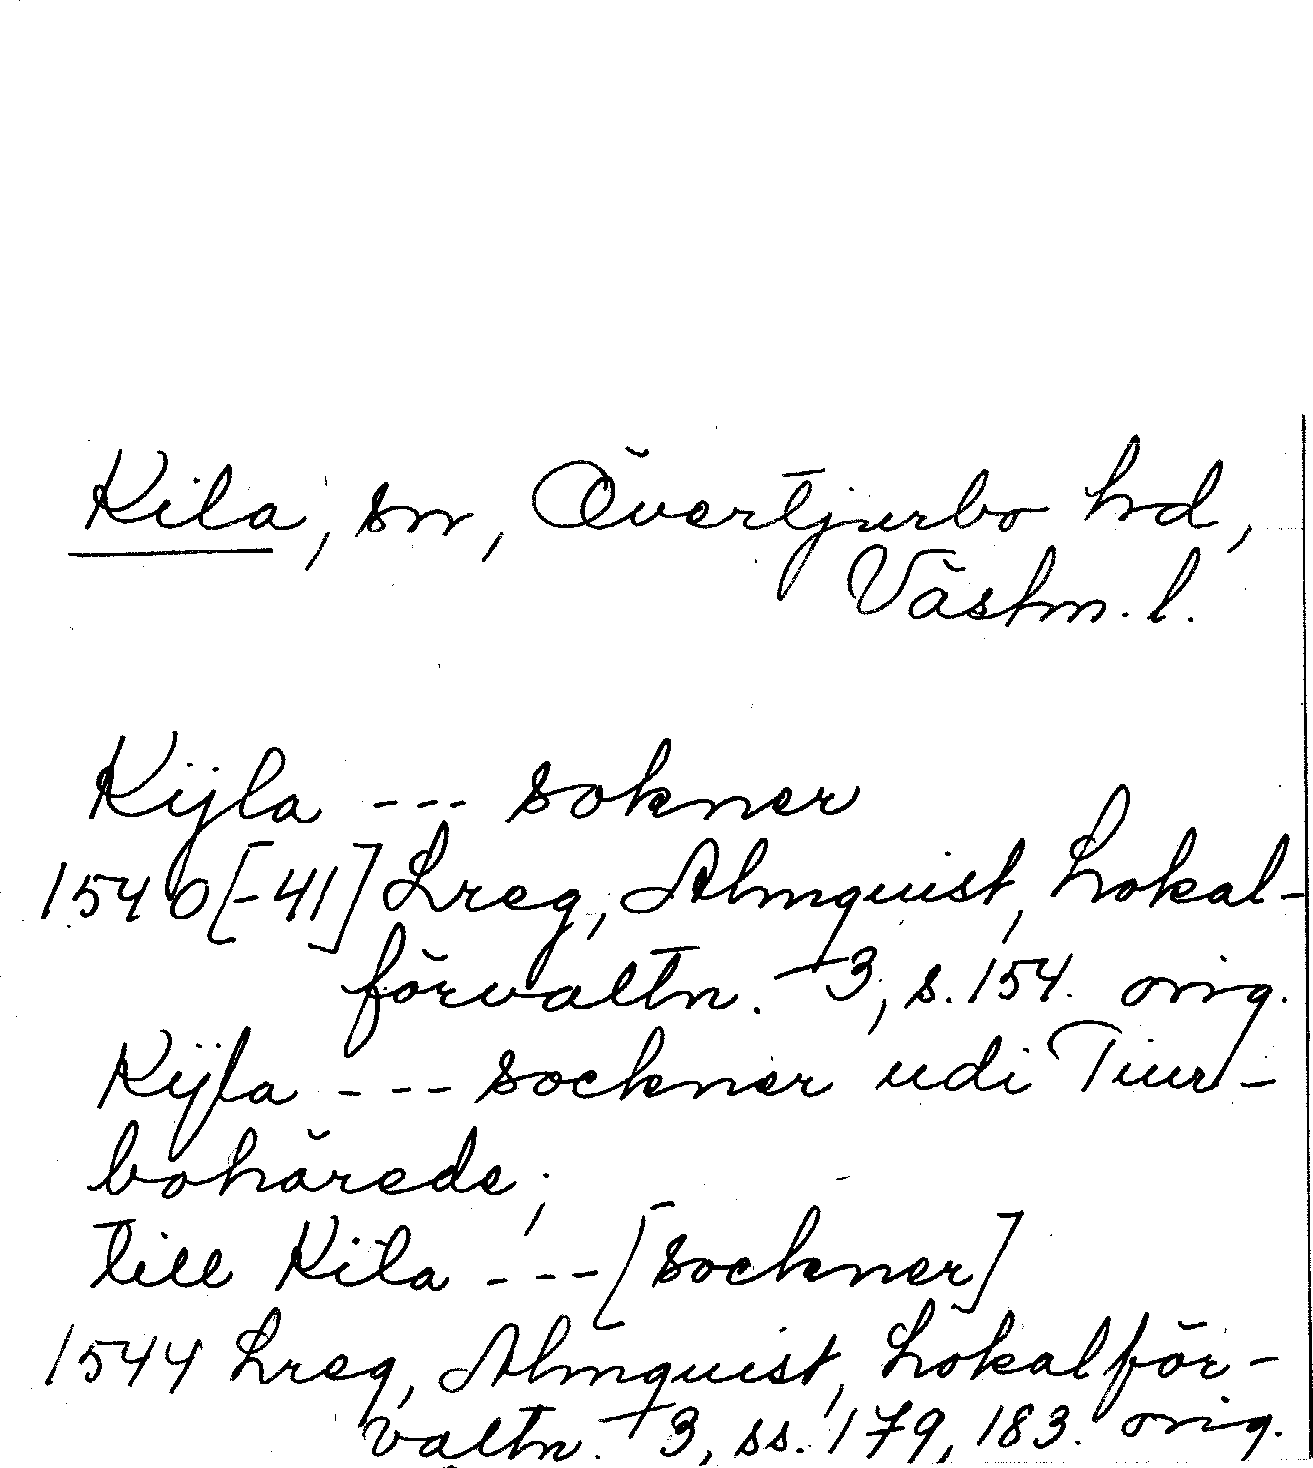 Kila, sn, Övertjurbo hd,
Västm. l.
Kijla --- sokner
1540[-41] Lreg, Almquist, Lokal-
förvaltn. 3, s. 154. orig.
Kÿla --- sockner udi Tiur-
bohärede;
till Kila --- [sockner]
1544 Lreg, Almquist, Lokalför-
valtn. 3, ss. 179, 183. orig.